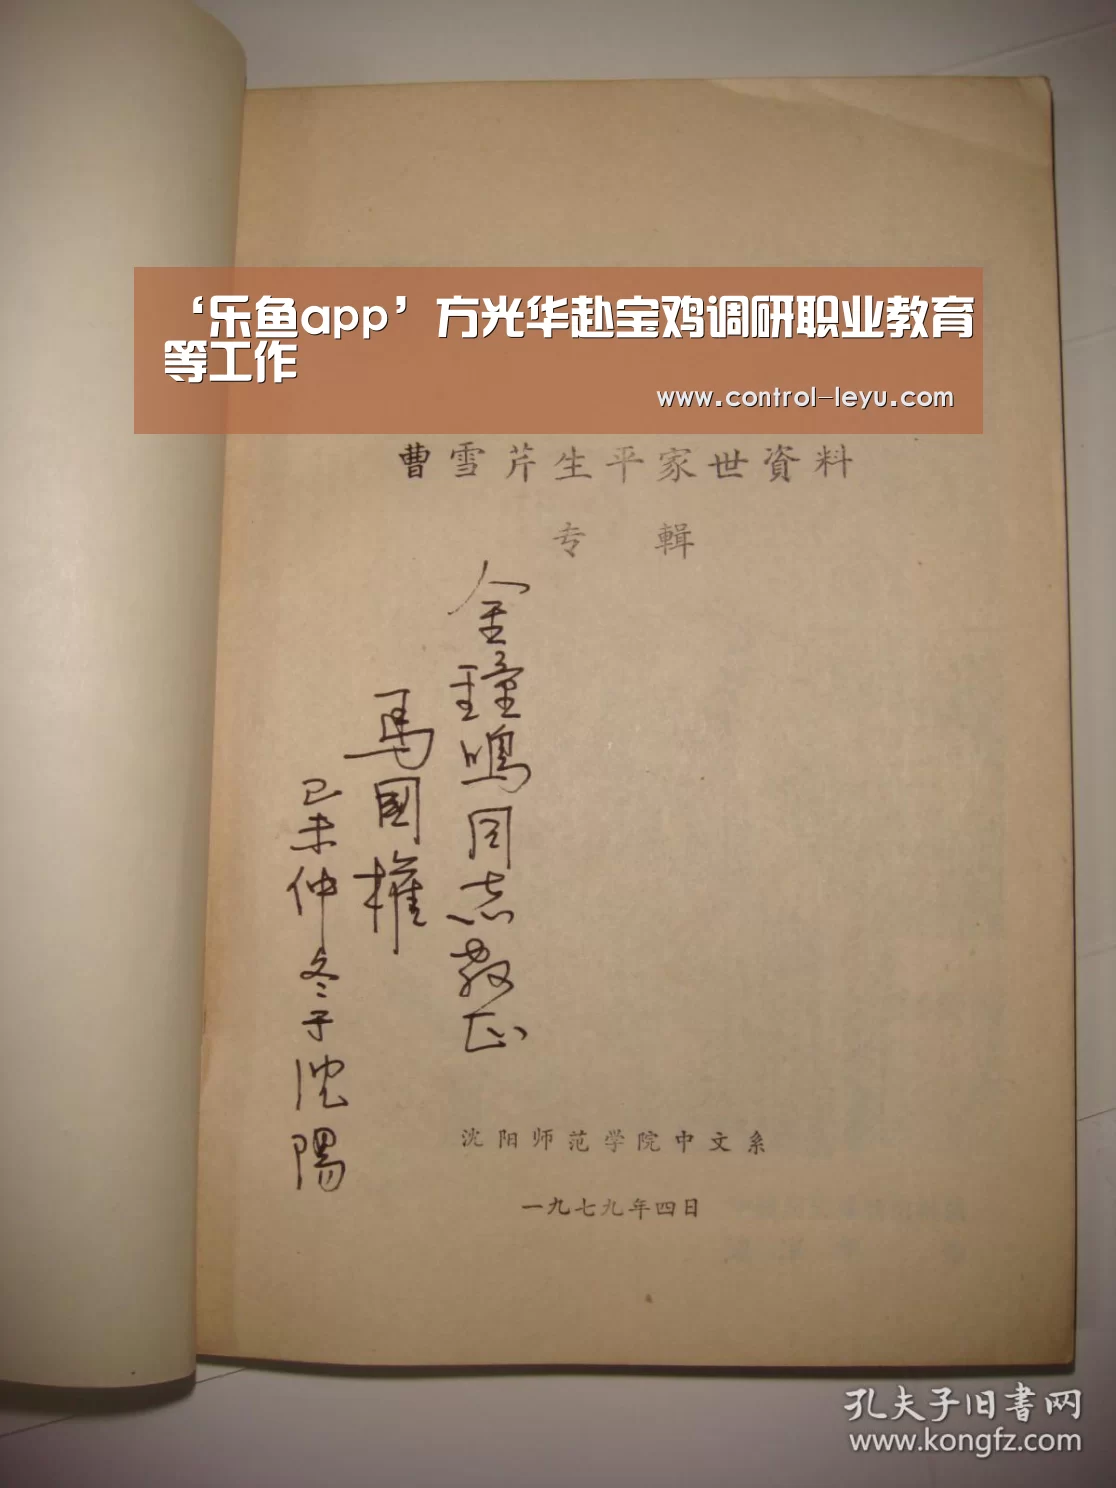 ‘乐鱼app’方光华赴宝鸡调研职业教育
等工作
www.control-leyu.com
曹雪芹生平家世資料
专輯
金鐘鳴同志教正
馬國權
己未仲冬于沈陽
沈阳师范学院中文系
一九七九年四日
孔夫子旧書网
www.kongfz.com